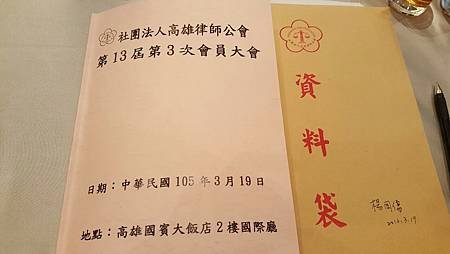 社團法人高雄律師公會
第13屆第3次會員大會
日期：中華民國 105 年 3 月 19 日
地點：高雄國賓大飯店 2 樓國際廳
資料袋
2016.3.19